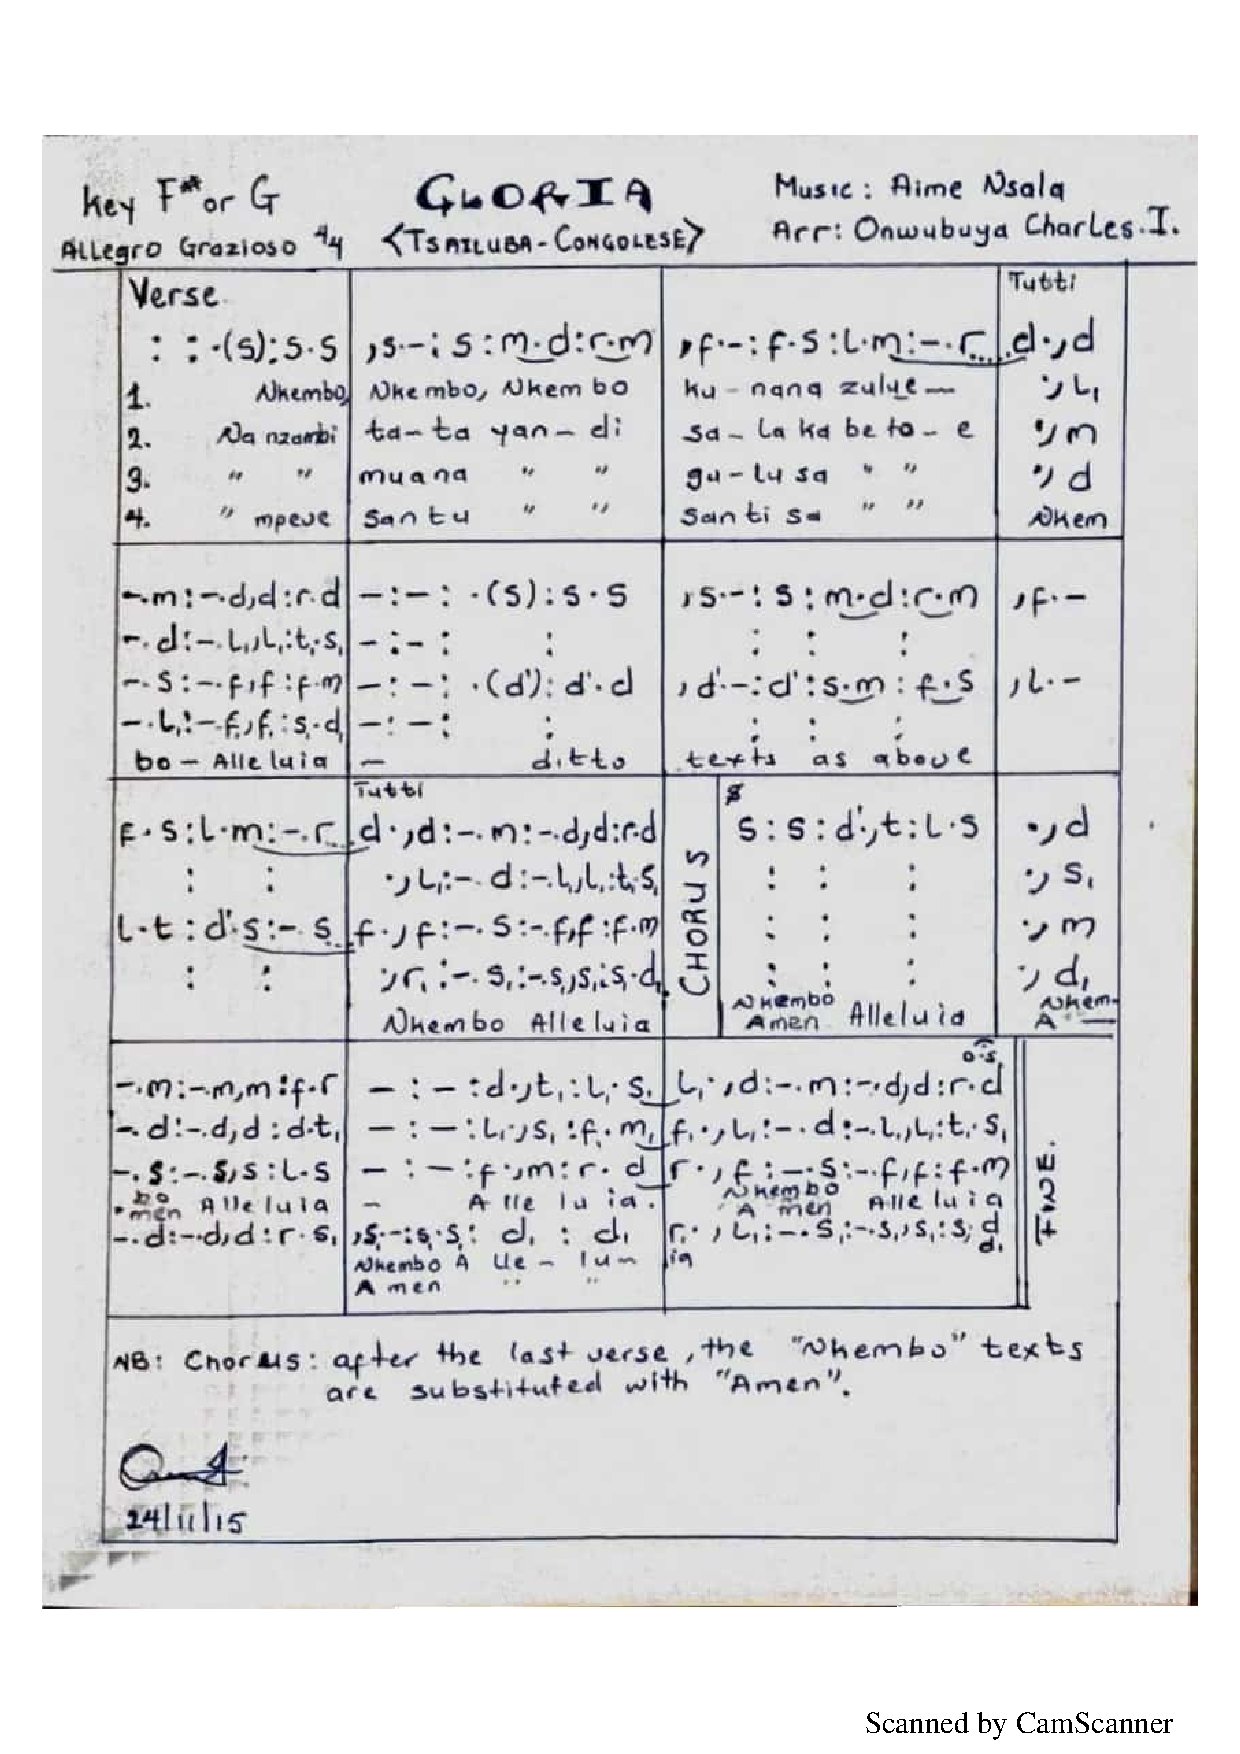 Key F# or G
GLORIA
Music: Aime Nsala
Allegro Grazioso 4/4
<TSAILUBA-CONGOLESE>
Arr: Onwubuya Charles.I.
Verse
Tutti
: : .(s):s.s | ,s.-:s:m.d:r.m | ,f.-:f.s:l.m:-.r | d.,d
1. Nkembo, Nkembo, Nkembo ku-nana zulue- ., l₁
2. Na nzambi ta-ta yan-di sa-la ka be to-e ., m
3. " " muana " " gu-lu sa " " ., d
4. " mpeve santu " " santi sa " " Nkem
-.m:-.d,d:r.d | -:-: .(s):s.s | ,s.-:s:m.d:r.m | ,f.-
-.d:-.l₁,l₁:t₁.s₁ | -:-: : | : : :
-.s:-.f,f:f.m | -:-: .(d'):d'.d | ,d'.-:d':s.m:f.s | ,l.-
-.l₁:-.f₁,f₁:s₁.d₁ | -:-: : | : : :
bo-Alleluia - ditto texts as above
Tutti
f.s:l.m:-.r | d.,d:-.m:-.d,d:r.d | CHORUS | s:s:d'.,t:l.s | .,d
: : | .,l₁:-.d:-.l₁,l₁:t₁.s₁ | : : : | ., s₁
l.t:d'.s:-.s | f.,f:-.s:-.f,f:f.m | : : : | ., m
: : | .,r₁:-.s₁:-.s₁,s₁:s₁.d₁ | : : : | ., d₁
Nkembo Alleluia
Nkembo
Amen Alleluia
Nkem-
A -
d.s₁
-.m:-.m,m:f.r | -:-:d.,t₁:l₁.s₁ | l₁.,d:-.m:-.d,d:r.d
-.d:-.d,d:d.t₁ | -:-:l₁.,s₁:f₁.m₁ | f₁.,l₁:-.d:-.l₁,l₁:t₁.s₁
-.s:-.s,s:l.s | -:-:f.,m:r.d | r.,f:-.s:-.f,f:f.m
bo
men Alleluia - A lle lu ia.
Nkembo
A men Alleluia
-.d:-.d,d:r.s₁ | ,s₁.-:s₁.s₁:d₁:d₁ | r₁.,l₁:-.s₁:-.s₁,s₁:s₁.d
d₁
Nkembo A lle - lu- ia
Amen " "
FINE.
NB: Chorus: after the last verse, the "Nkembo" texts
are substituted with "Amen".
24/11/15
Scanned by CamScanner